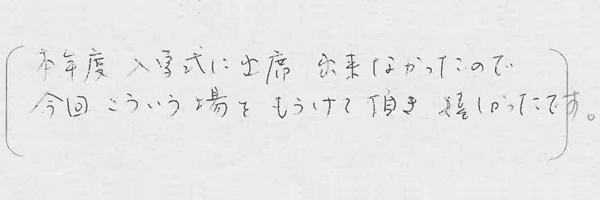 本年度 入学式に出席 出来なかったので
今回 こういう場を もうけて 頂き 嬉しかったです。